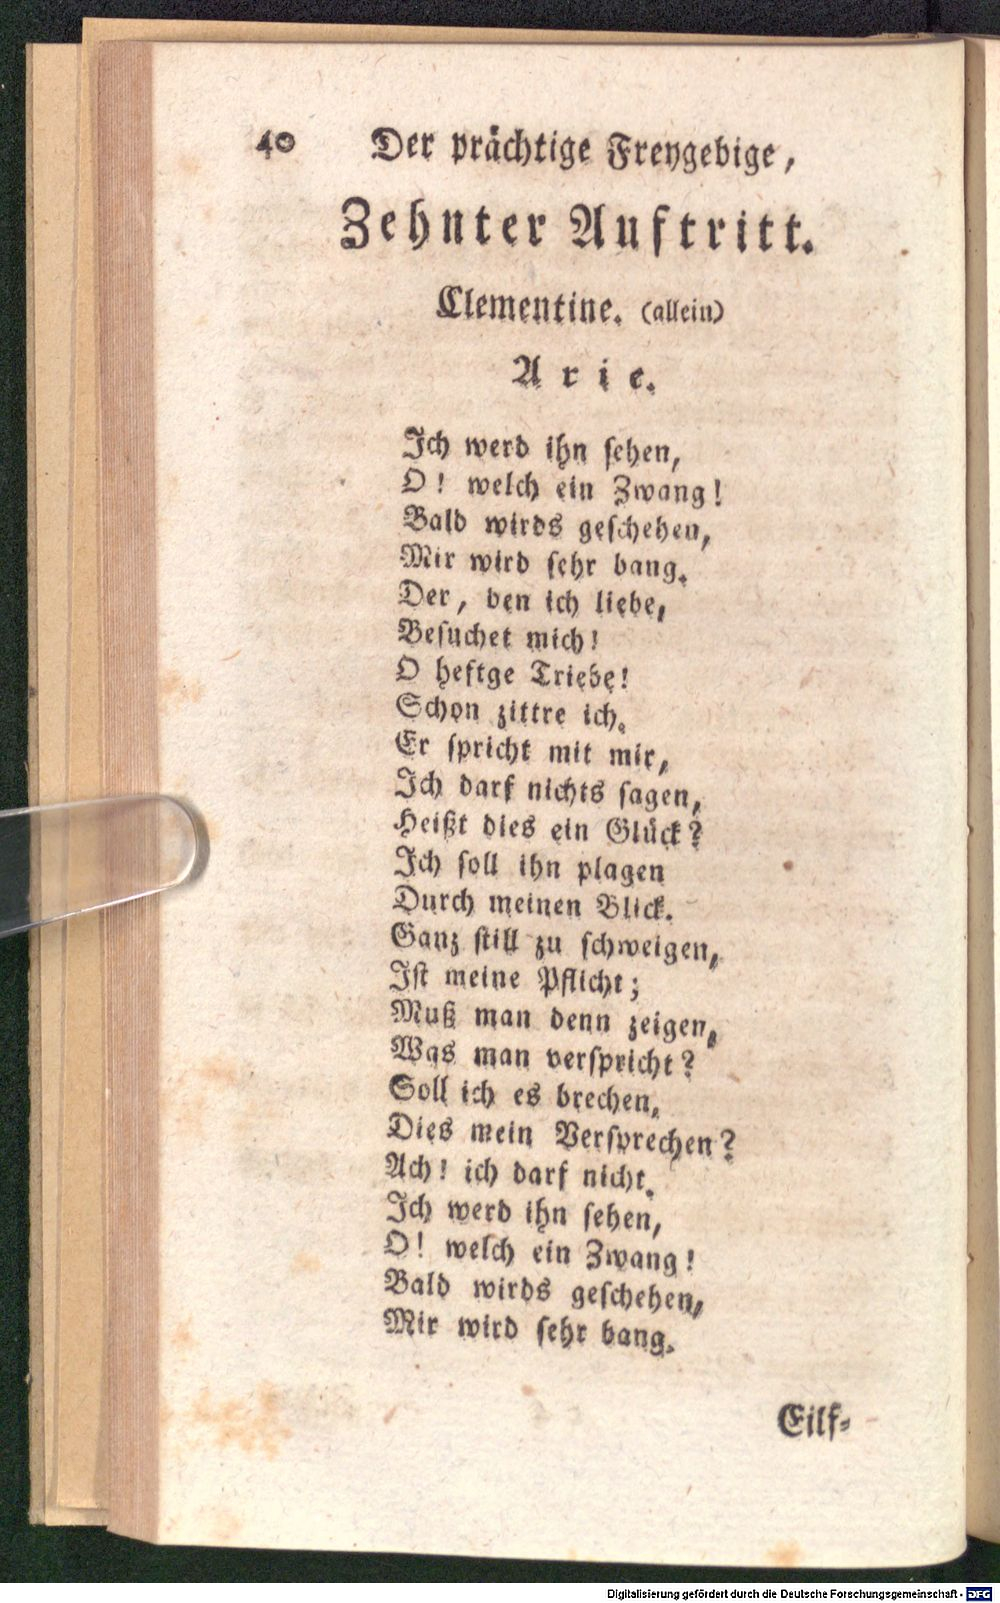 40 Der prächtige Freygebige,
Zehnter Auftritt.
Clementine. (allein)
Arie.
Ich werd ihn sehen,
O! welch ein Zwang!
Bald wirds geschehen,
Mir wird sehr bang.
Der, den ich liebe,
Besuchet mich!
O heftge Triebe!
Schon zittre ich.
Er spricht mit mir,
Ich darf nichts sagen,
Heißt dies ein Glück?
Ich soll ihn plagen
Durch meinen Blick.
Ganz still zu schweigen,
Ist meine Pflicht;
Muß man denn zeigen,
Was man verspricht?
Soll ich es brechen,
Dies mein Versprechen?
Ach! ich darf nicht.
Ich werd ihn sehen,
O! welch ein Zwang!
Bald wirds geschehen,
Mir wird sehr bang.
Eilf-
Digitalisierung gefördert durch die Deutsche Forschungsgemeinschaft - DFG